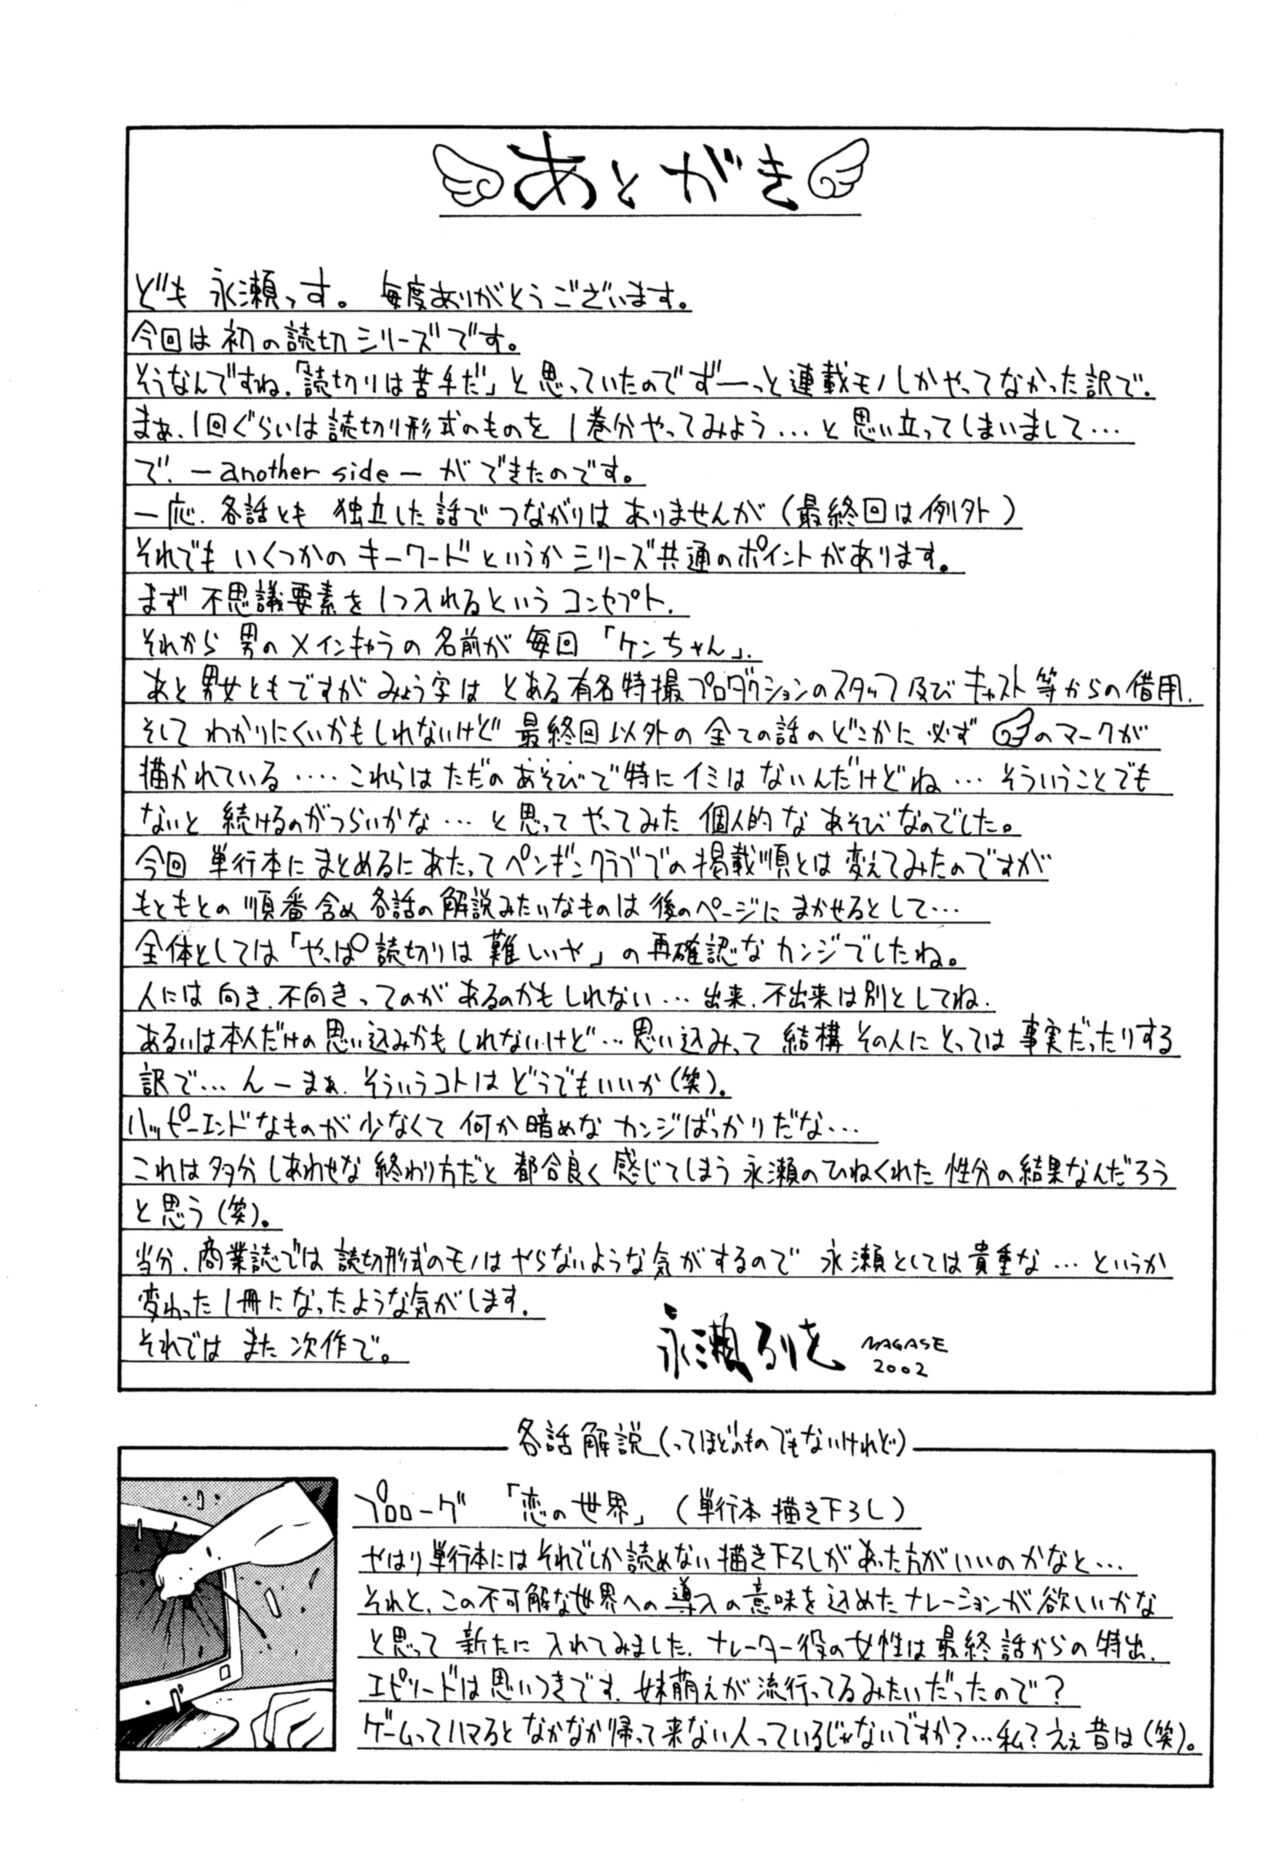 あとがき
ども 永瀬っす。毎度ありがとうございます。
今回は初の読切シリーズです。
そうなんですね.「読切りは苦手だ」と思っていたのでずーっと連載モノしかやってなかった訳で.
まぁ、1回ぐらいは読切り形式のものを1巻分やってみよう…と思い立ってしまいまして…
で. ーanother sideー ができたのです。
一応. 各話とも 独立した話でつながりは ありませんが(最終回は例外)
それでも いくつかの キーワードというかシリーズ共通のポイントがあります。
まず 不思議要素を1つ入れるという コンセプト.
それから 男の メインキャラの 名前が 毎回 「ケンちゃん」.
あと 男女ともですが みょう字は とある有名特撮プロダクションのスタッフ及び キャスト等からの借用.
そして わかりにくいかもしれないけど 最終回以外の 全ての話のどこかに 必ず のマークが
描かれている ‥‥‥ これらは ただの あそびで特に イミは ないんだけどね … そういうことでも
ないと 続けるのがつらいかな … と思って やってみた 個人的な あそびなのでした。
今回 単行本に まとめるに あたって ペンギンクラブでの 掲載順とは 変えてみたのですが
もともとの 順番含め 各話の 解説みたいなものは 後のページに まかせるとして…
全体としては「やっぱ読切りは 難しいや」の 再確認な カンジでしたね。
人には 向き.不向きってのが あるのかもしれない … 出来.不出来は別としてね.
あるいは本人だけの思い込みかも しれないけど…思い込みって 結構 その人に とっては 事実だったりする
訳で…んーまぁ. そういうコトは どうでもいいか(笑)。
ハッピーエンドなものが 少なくて 何か暗めな カンジばっかりだな…
これは 多分 しあわせな 終わり方だと 都合良く 感じてしまう 永瀬のひねくれた 性分の結果なんだろう
と思う(笑)。
当分. 商業誌では 読切形式のモノは やらないような 気がするので 永瀬としては貴重な … というか
変わった1冊になったような気がします.
それでは また 次作で。
永瀬るりを NAGASE
2002
各話解説(ってほどのものでもないけれど)
プロローグ 「恋の世界」(単行本描き下ろし)
やはり単行本にはそれでしか読めない描き下ろしがあった方がいいのかなと…
それと、この不可解な世界への導入の意味を込めたナレーションが欲しいかな
と思って 新たに 入れてみました. ナレーター役の女性は最終話からの特出.
エピソードは思いつきです. 妹萌えが流行ってるみたいだったので?
ゲームってハマると なかなか帰って来ない人っているじゃないですか?…私?ええ昔は(笑)。